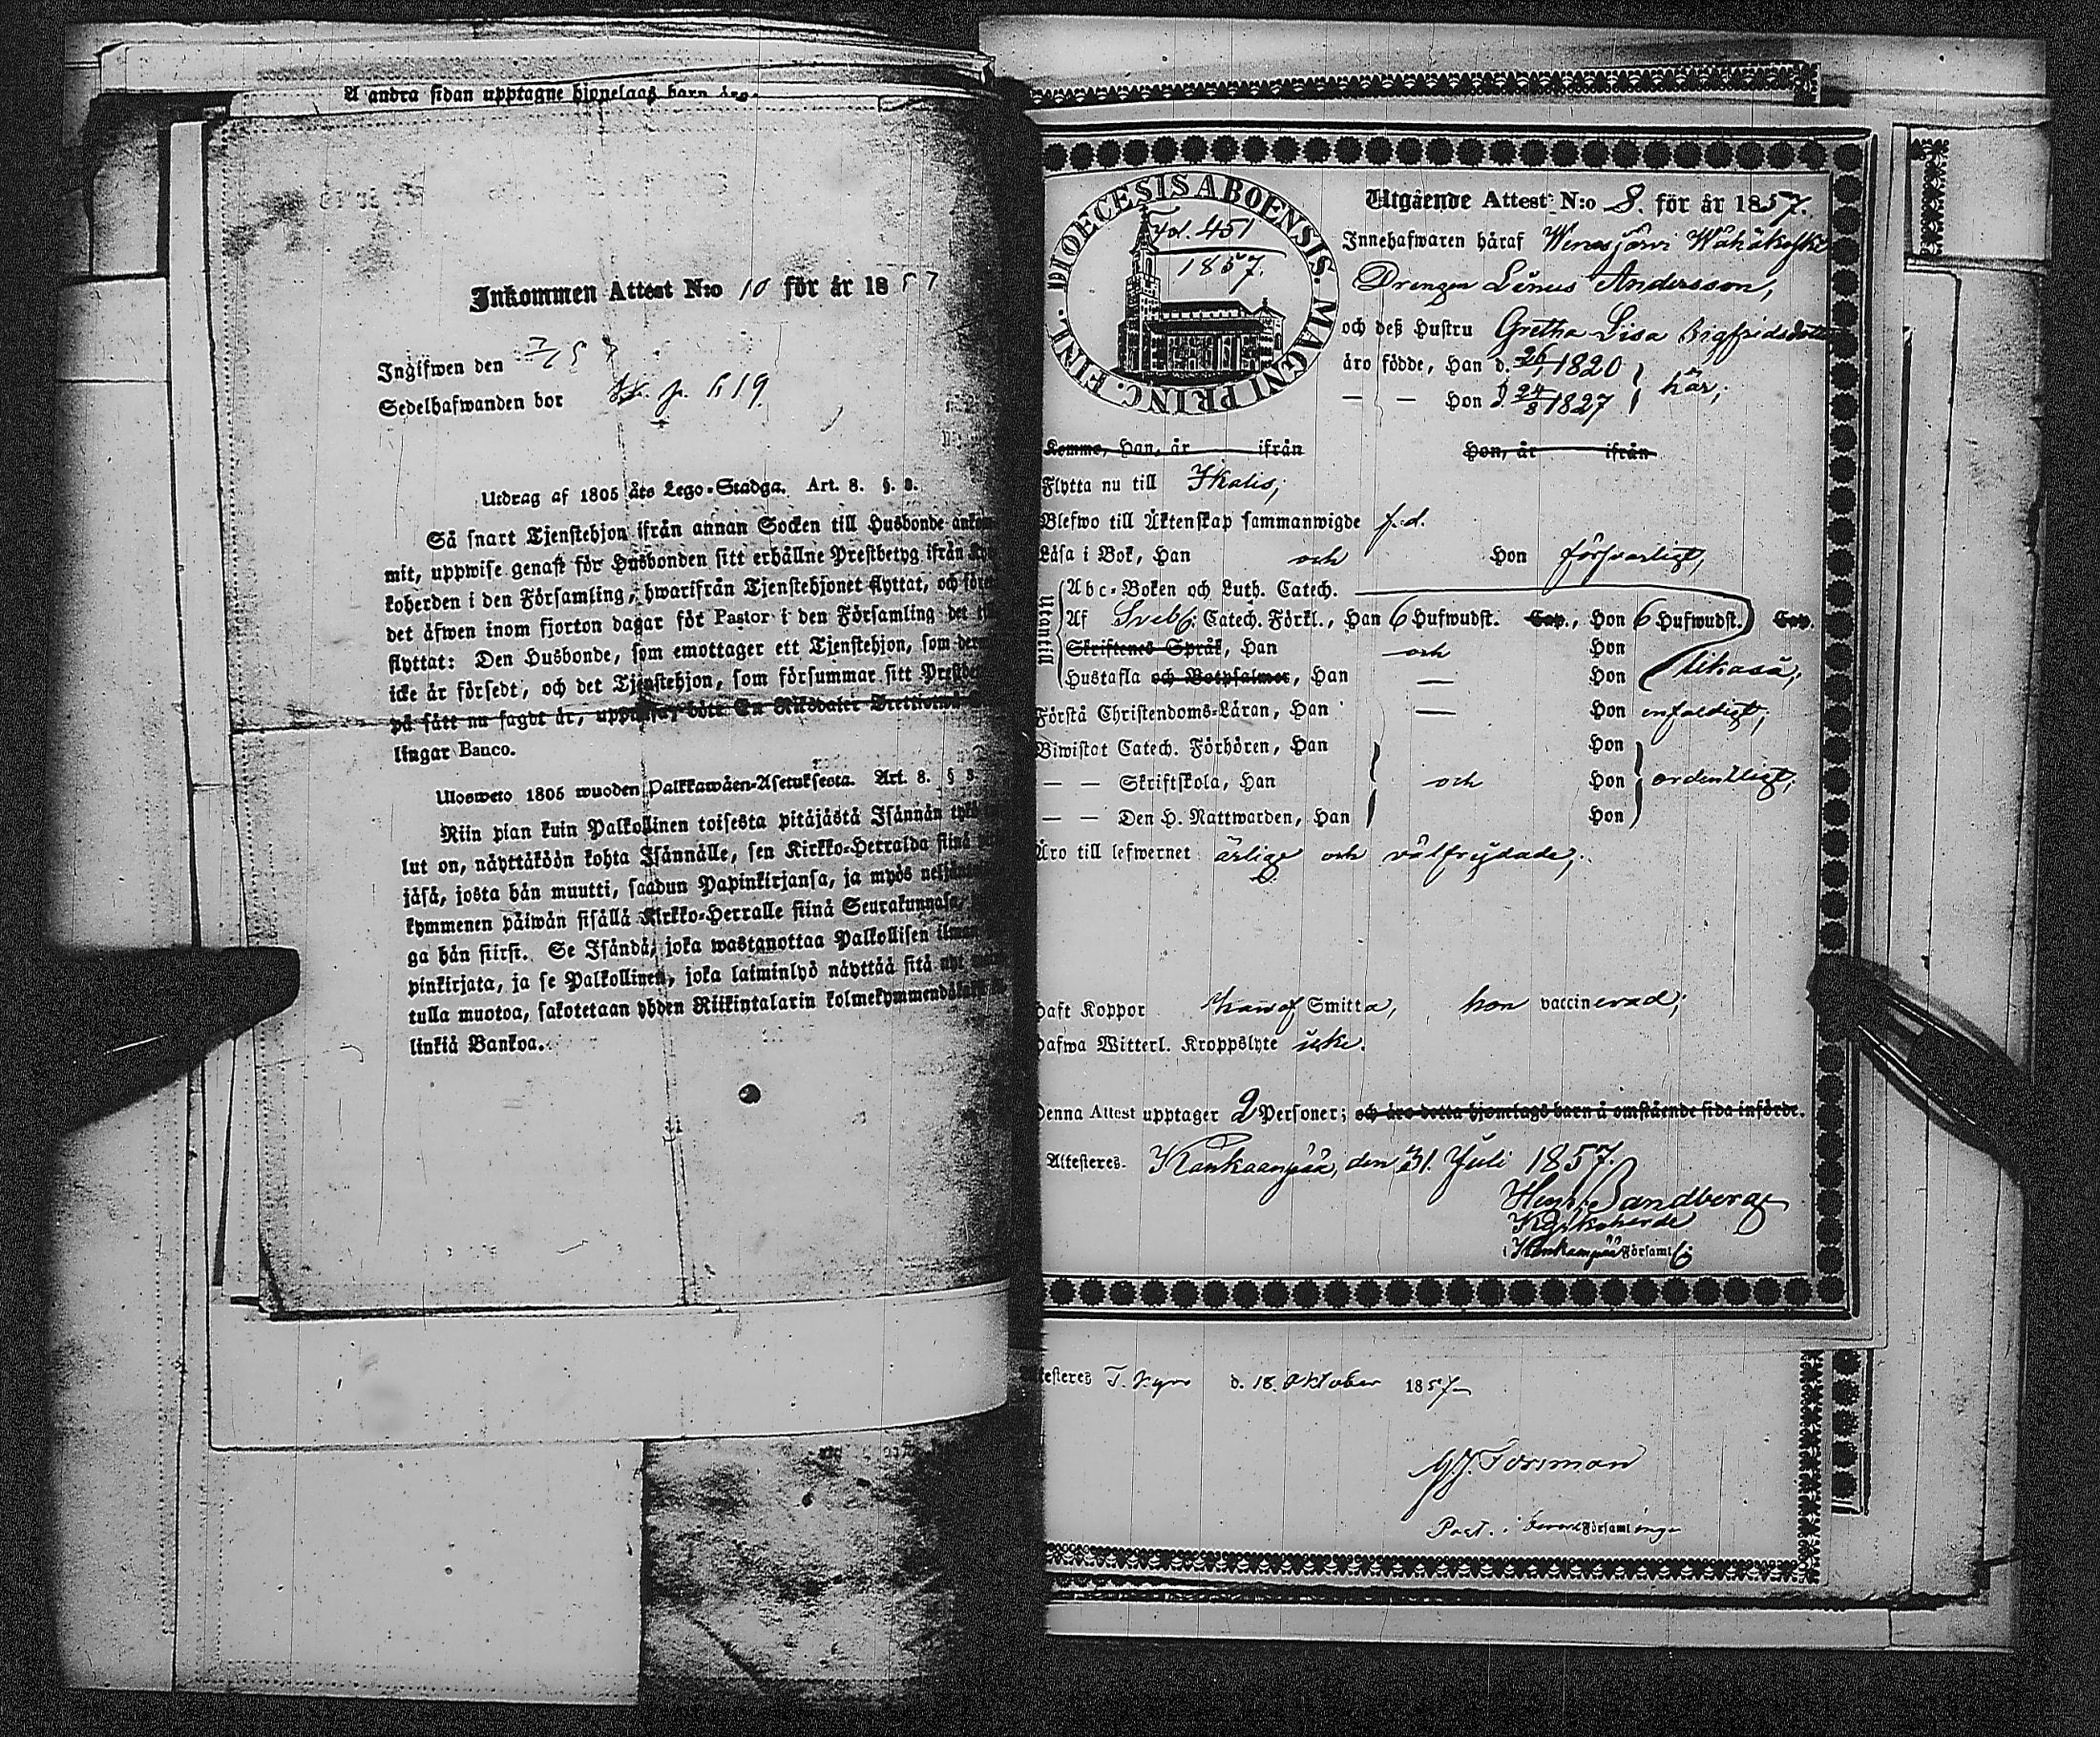 Å andra sidan upptagne hjonelags barn äro.
Inkommen Attest N:o 10 för år 1857
Ingifwen den
Sedelhafwanden bor
Utdrag af 1805 års Lego-Stadga. Art. 8. §. 8.
Så snart Tjenstehjon ifrån annan Socken till Husbonde
mit, uppwise genast för Husbonden sitt erhållne Prestbetyg ifrån
koherden i den Församling, hwarifrån Tjenstehjonet flyttat, och
det äfwen inom fjorton dagar för Pastor i den Församling det
flyttat: Den Husbonde, som emottager ett Tjenstehjon, som
icke är försedt, och det Tjenstehjon, som försummar sitt
på sätt nu sagdt är, uppwisa, böte En Riksdaler
lingar Banco.
Uloswero 1805 wuoden Palkkawäen-Asetuksesta. Art. 8. § 8.
Niin pian kuin Palkollinen toisesta pitäjästä Isännän
lut on, näyttäköön kohta Isännälle, sen Kirkko-Herralda siinä
jäsä, josta hän muutti, saadun Papinkirjansa, ja myös
kymmenen päiwän sisällä Kirkko-Herralle siinä Seurakunnasa,
ga hän siirst. Se Isändä, joka wastanottaa Palkollisen
pinkirjata, ja se Palkollinen, joka laiminlyö näyttää sitä
tulla muotoa, sakotetaan yhden Riikintalarin
linkiä Bankoa.
DIOECESIS ABOENSIS. MAGNI PRINC. FINL.
Fol. 451
1857.
Utgående Attest N:o 8. för år 1857.
Innehafwaren häraf Wenesjärvi
Drengen Linus Andersson,
och deß Hustru Gretha Lisa Sigfridsdotter
äro födde, Han d. 26/1 1820
— — Hon d. 24/8 1827 } här;
Komme, Han, år ifrån Hon, år ifrån
Flytta nu till Ikalis,
Blefwo till Äktenskap sammanwigde f. d.
Läsa i Bok, Han och Hon försvarligt,
Utantill
Abc-Boken och Luth. Catech.
Af Sveb: Catech. Förkl., Han 6 Hufwudst. Cap., Hon 6 Hufwudst. Cap.
Skriftenes Språk, Han och Hon
Hustafla och Botpsalmer, Han — Hon likaså;
Förstå Christendoms-Läran, Han — Hon enfaldigt;
Biwistat Catech. Förhören, Han Hon
— — Skriftskola, Han och Hon ordentligt;
— — Den H. Nattwarden, Han Hon
Äro till lefwernet ärlige och välfrejdade;
Haft Koppor han af Smitta, hon vaccinerad;
Hafwa Witterl. Kroppslyte icke.
Denna Attest upptager 2 Personer; och äro detta hjonelags barn å omstående sida införde.
Attesteres. Kankaanpää, den 31. Juli 1857.
Sandberg
Kyrkoherde
i Kankaanpää Församl:
Attesteres T. Kyro d. 18. Oktober 1857
Forsman
Past. i Församlingen